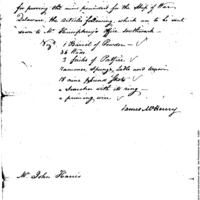 for proving the nine pounders for the Ship of War
Delaware, the articles following, which are to be sent
down to Mr Humphreys's Office Southwark.
Vizt 1 Barrel of Powder
36 Wads
2 Sticks of Portfire
Rammer, Sponge, Ladle and
18 nine pound Shots
a Searcher with its ring
a priming wire
James McHenry
Mr John Harris